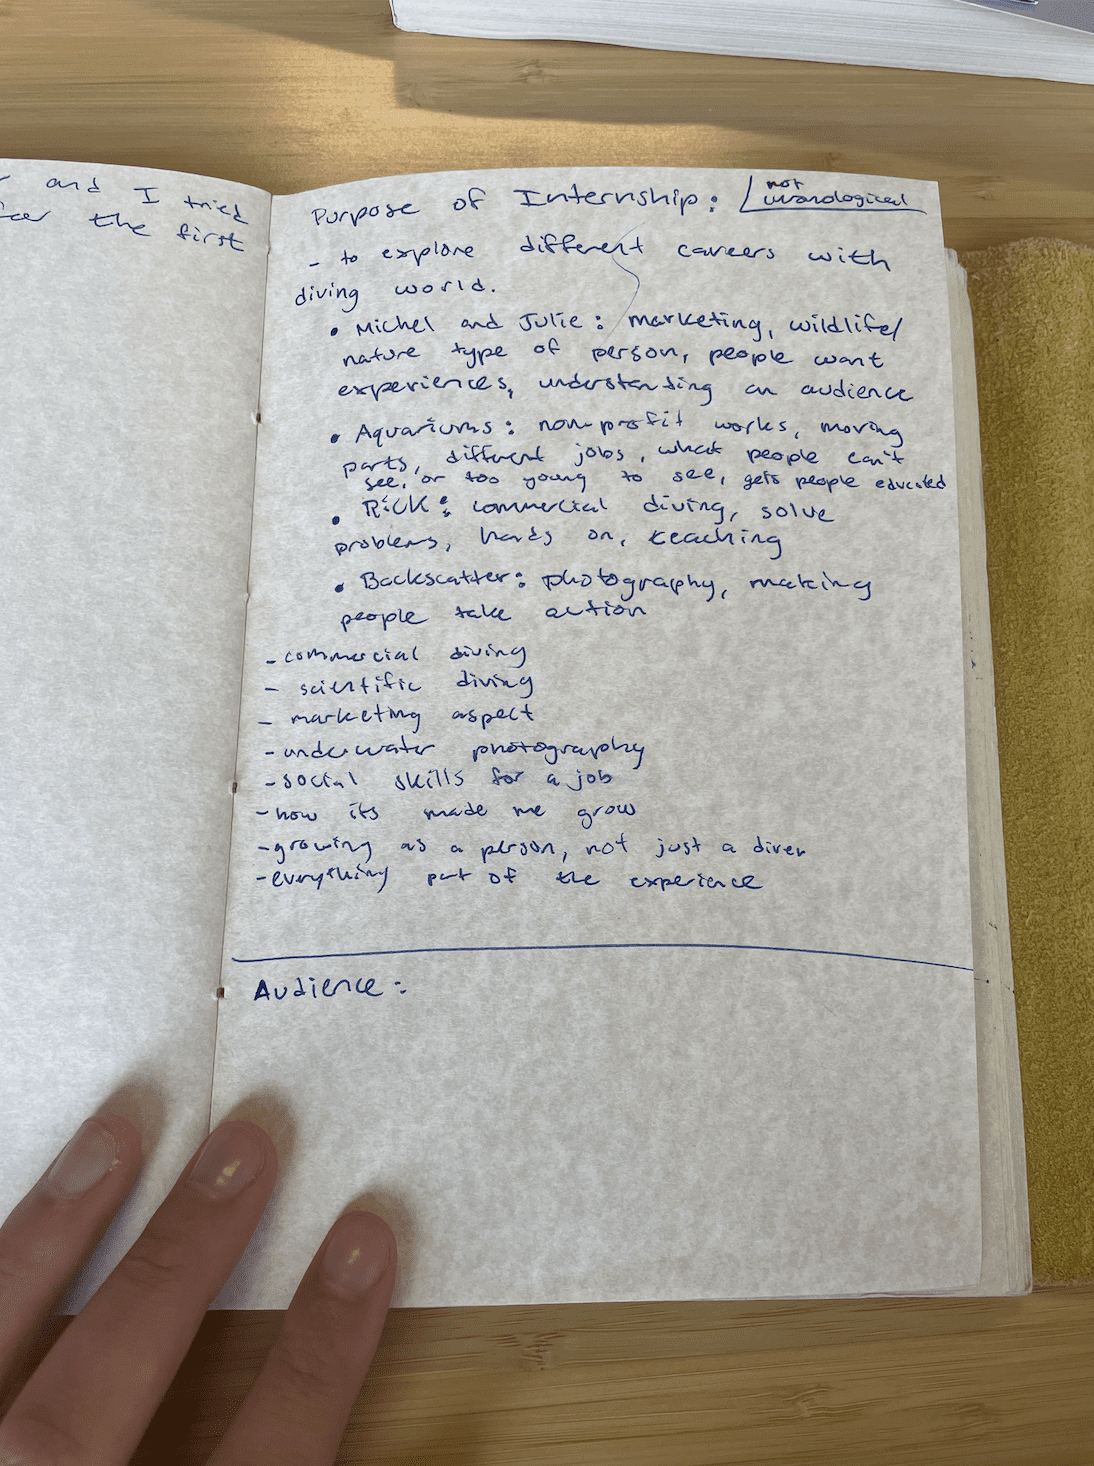 and I tried
the first
Purpose of Internship:
not
- to explore different careers with
diving world.
• Michel and Julie: marketing, wildlife/
nature type of person, people want
experiences, understanding an audience
• Aquariums: non-profit works, moving
parts, different jobs, what people can't
see, or too young to see, gets people educated
• Rick: commercial diving, solve
problems, hands on, teaching
• Backscatter: photography, making
people take action
- commercial diving
- scientific diving
- marketing aspect
- underwater photography
- social skills for a job
- how its made me grow
- growing as a person, not just a diver
- everything part of the experience
Audience: